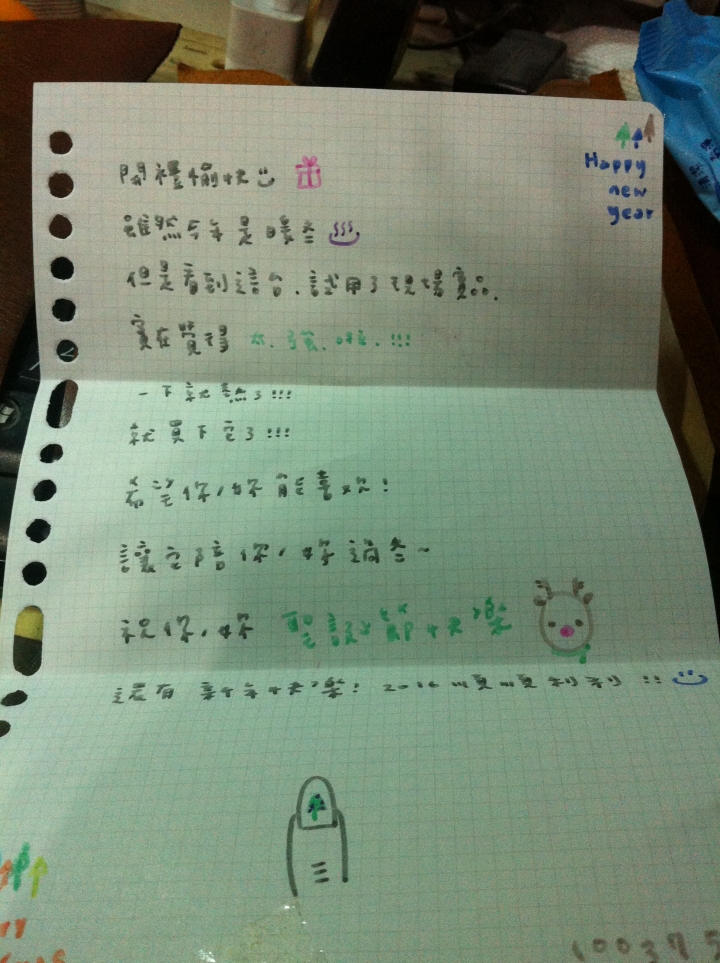 Happy
new
year
開禮愉快
雖然今年是暖冬
但是看到這台.試用了現場實品.
實在覺得 太.強.啦.!!!
一下就熱了!!!
就買下它了!!!
希望你/妳能喜歡!
讓它陪你/妳過冬~
祝你/妳 聖誕節快樂
還有 新年快樂! 2016 順順利利 !!
100375